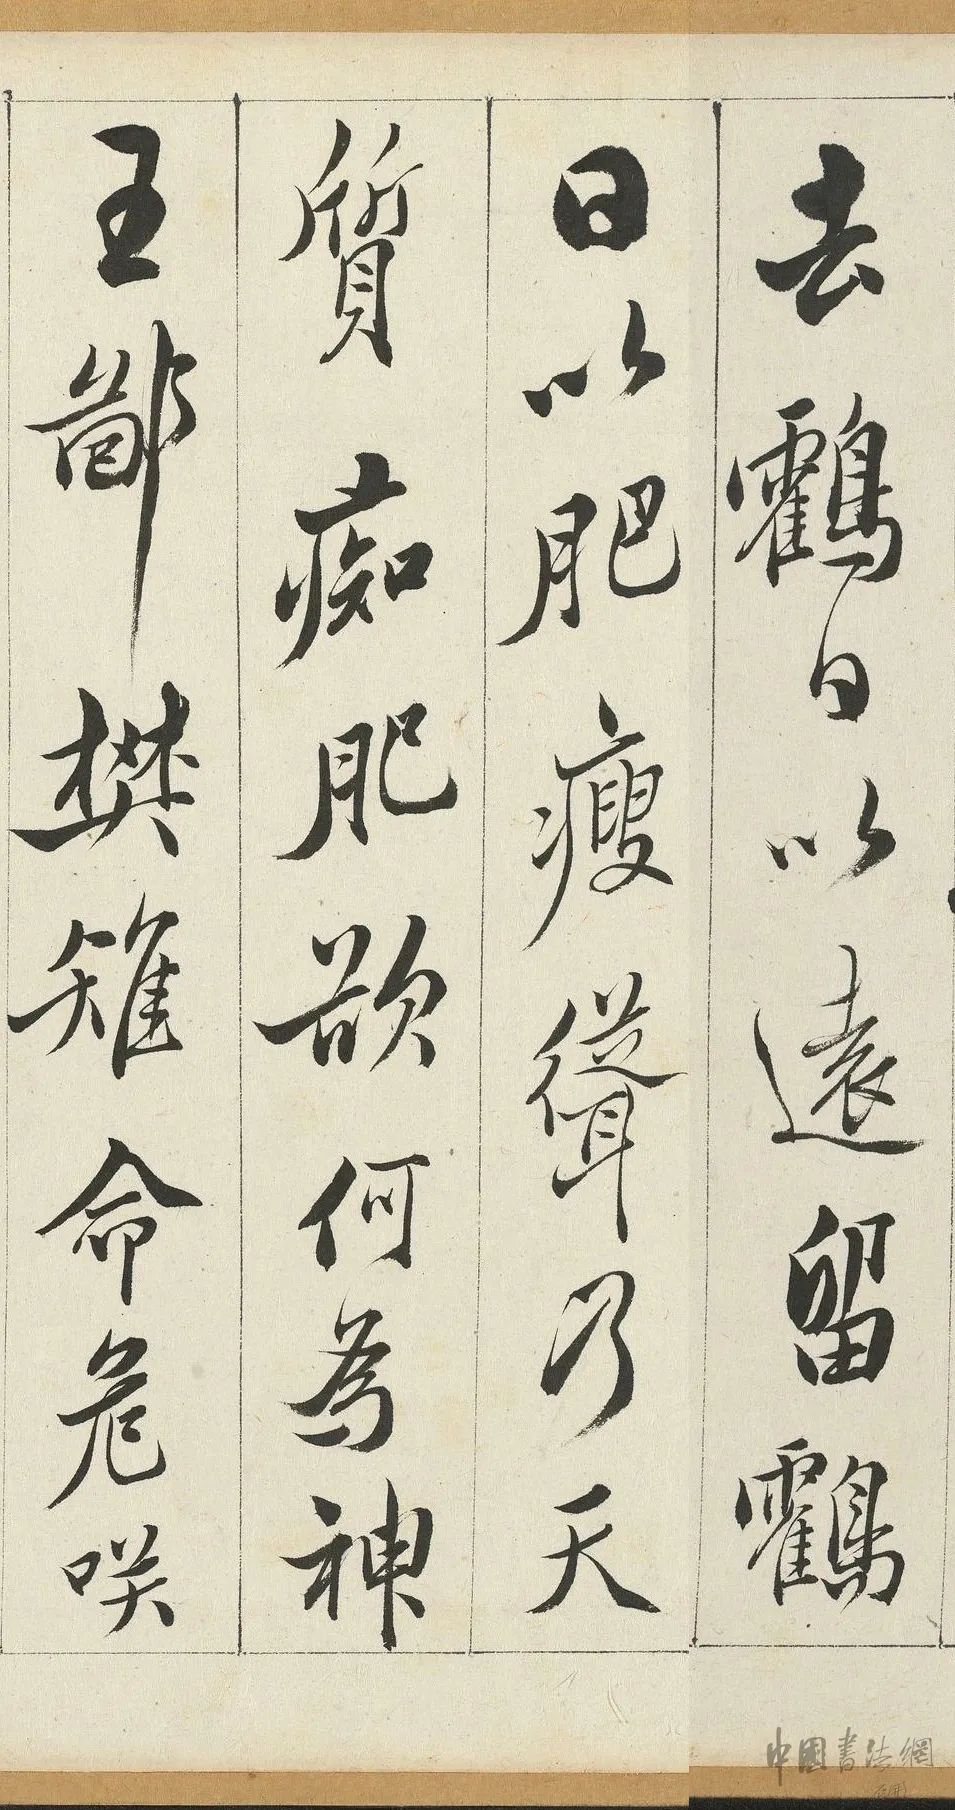 去鸖日以遠留鸖
日以肥瘦聳乃天
質痴肥欲何為神
王鄙樊雉命危咲
中國書法網